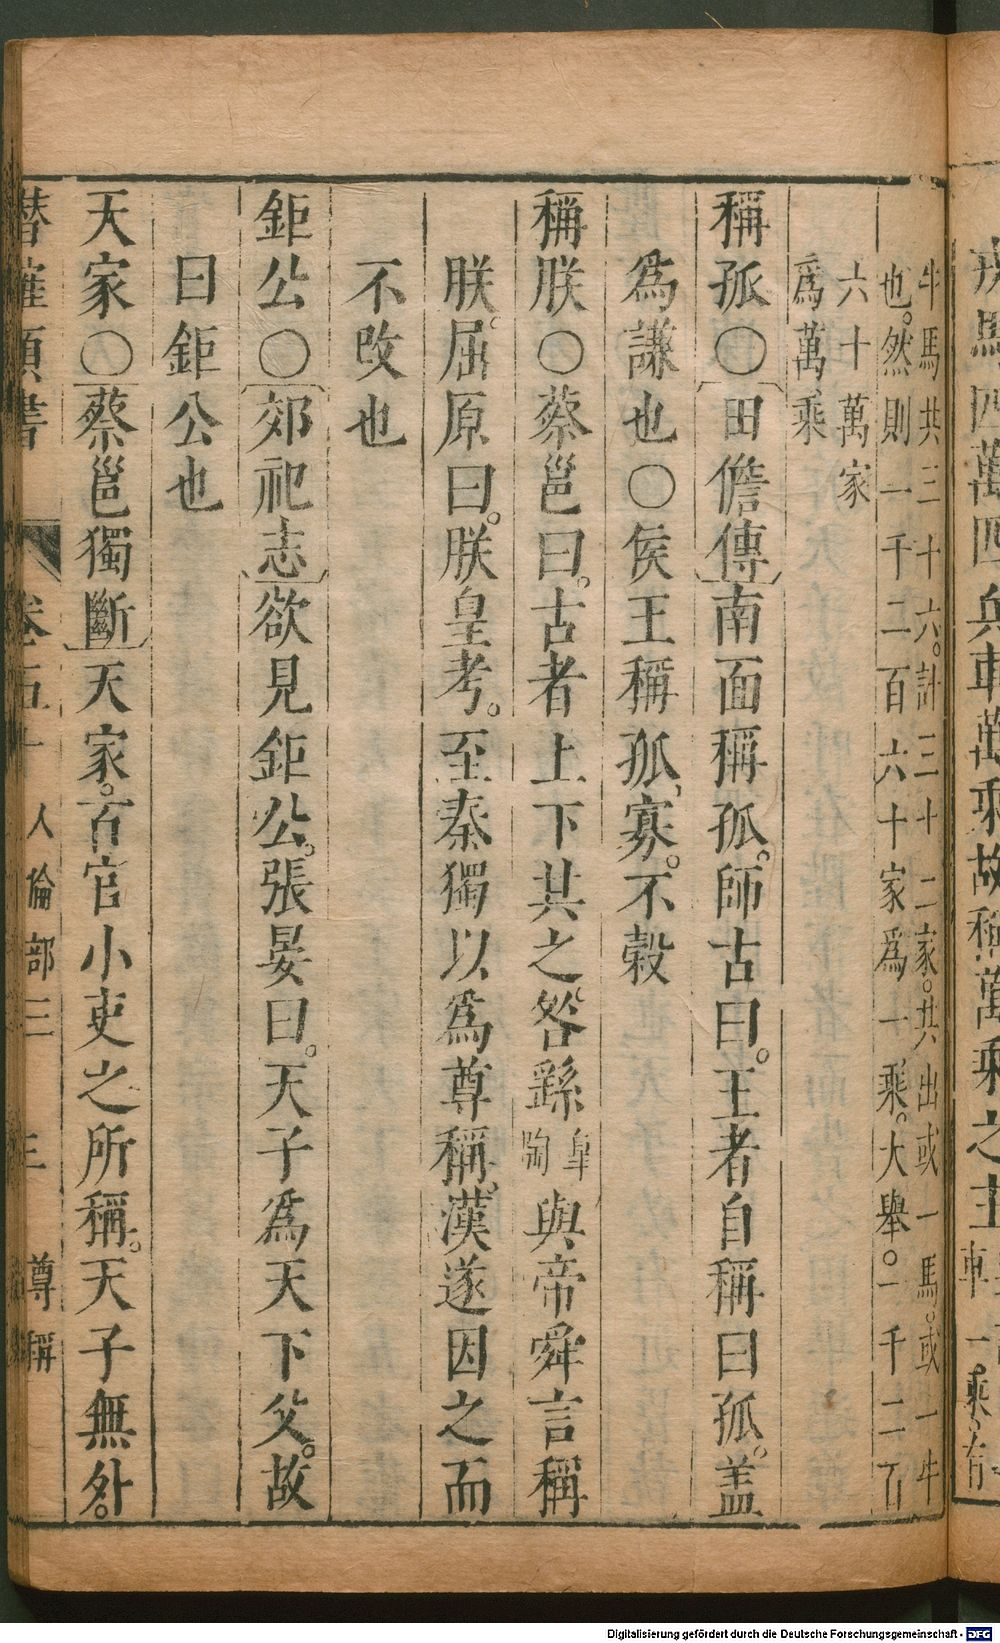 戎馬四萬四兵車萬乘故稱萬乘之主
車一乘有
牛馬共三十六計三十二家共出或一馬或一牛
也然則一千二百六十家爲一乘大舉一千二百
六十萬家
爲萬乘
稱孤〇田儋傳南面稱孤師古曰王者自稱曰孤蓋
爲謙也〇侯王稱孤寡不穀
稱朕〇蔡邕曰古者上下共之咎繇皐陶與帝舜言稱
朕屈原曰朕皇考至秦獨以爲尊稱漢遂因之而
不改也
鉅公〇郊祀志欲見鉅公張晏曰天子爲天下父故
曰鉅公也
天家〇蔡邕獨斷天家百官小吏之所稱天子無外
潛確類書 卷五十 人倫部三 三 尊稱
Digitalisierung gefördert durch die Deutsche Forschungsgemeinschaft - DFG